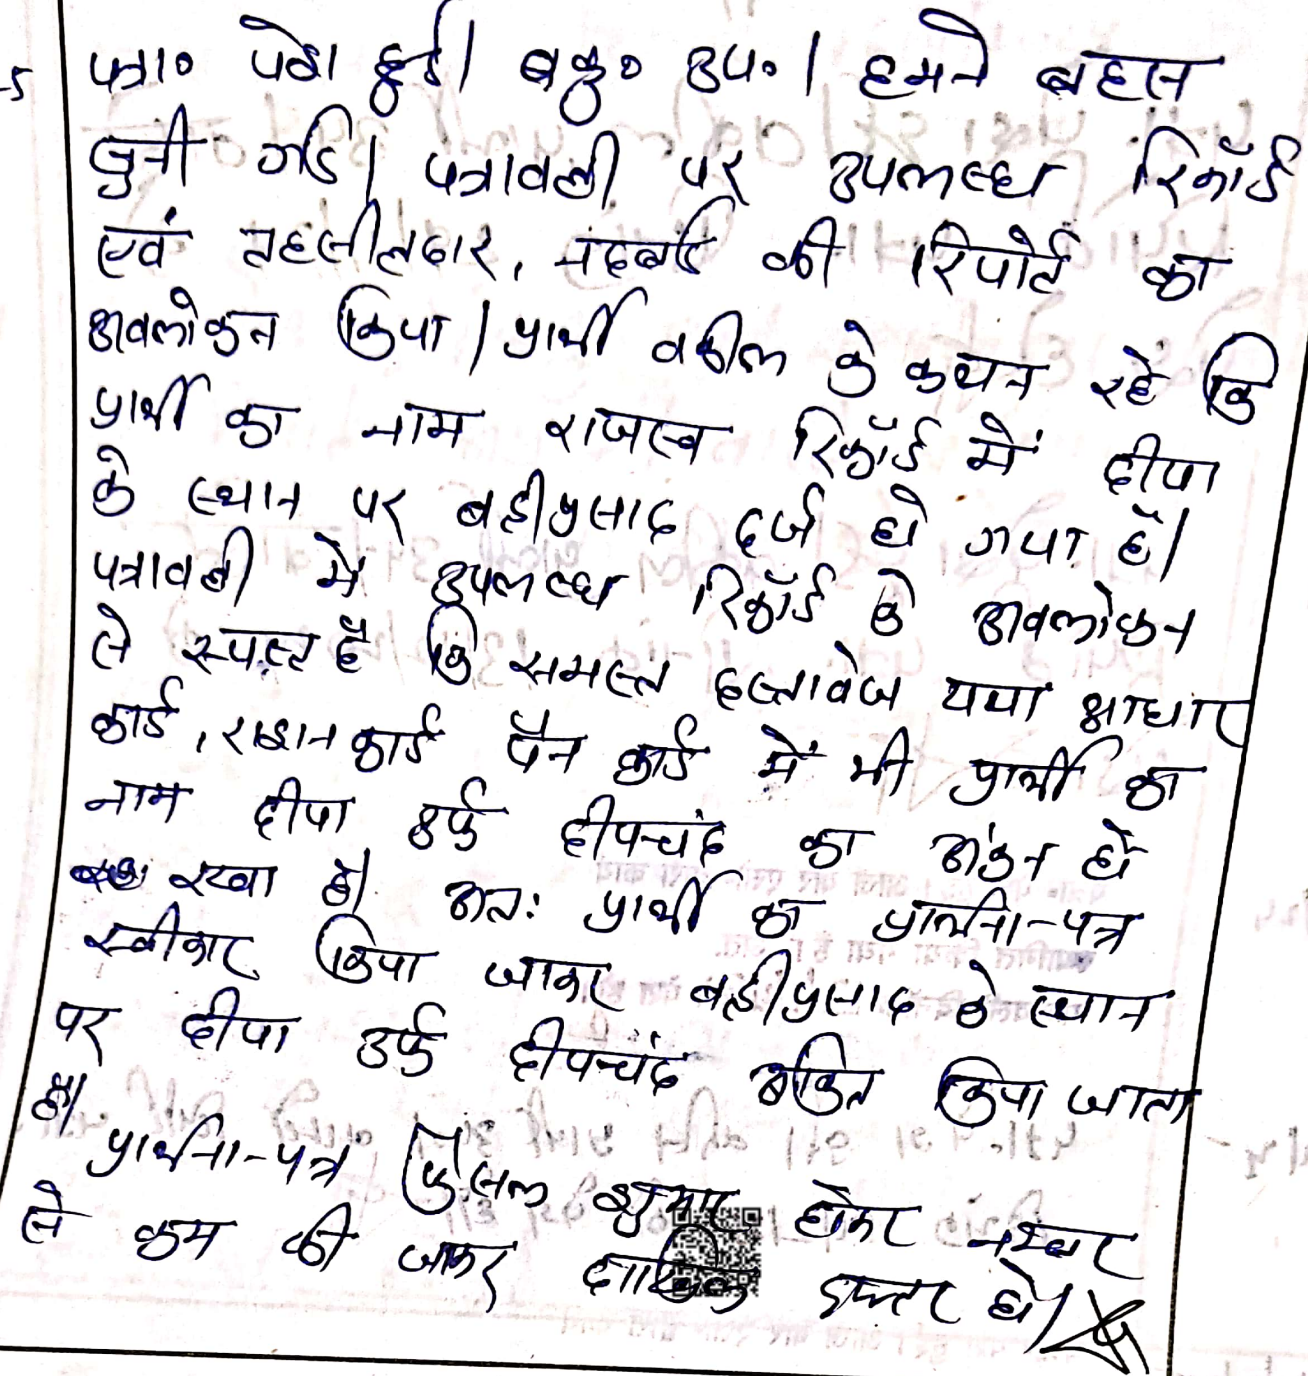 पत्रा० पेश हुई। वकु० उप०। हमने बहस
सुनी गई। पत्रावली पर उपलब्ध रिकॉर्ड
एवं तहसीलदार, नदबई की रिपोर्ट का
अवलोकन किया। प्रार्थी वकील के कथन रहे कि
प्रार्थी का नाम राजस्व रिकॉर्ड में दीपा
के स्थान पर बद्रीप्रसाद दर्ज हो गया है।
पत्रावली में उपलब्ध रिकॉर्ड के अवलोकन
से स्पष्ट है कि समस्त दस्तावेज यथा आधार
कार्ड, राशन कार्ड पैन कार्ड में भी प्रार्थी का
नाम दीपा उर्फ दीपचंद का अंकन हो
रखा है। अतः प्रार्थी का प्रार्थना-पत्र
स्वीकार किया जाकर बद्रीप्रसाद के स्थान
पर दीपा उर्फ दीपचंद अंकित किया जाता
है।
प्रार्थना-पत्र फैसल शुमार होकर नम्बर
से कम की जाकर दाखिल दफ्तर हो।